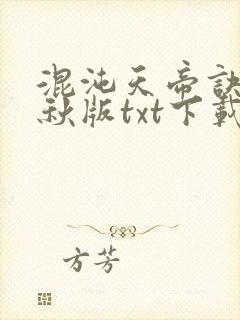 混沌天帝訣
秋版txt下載
方芳